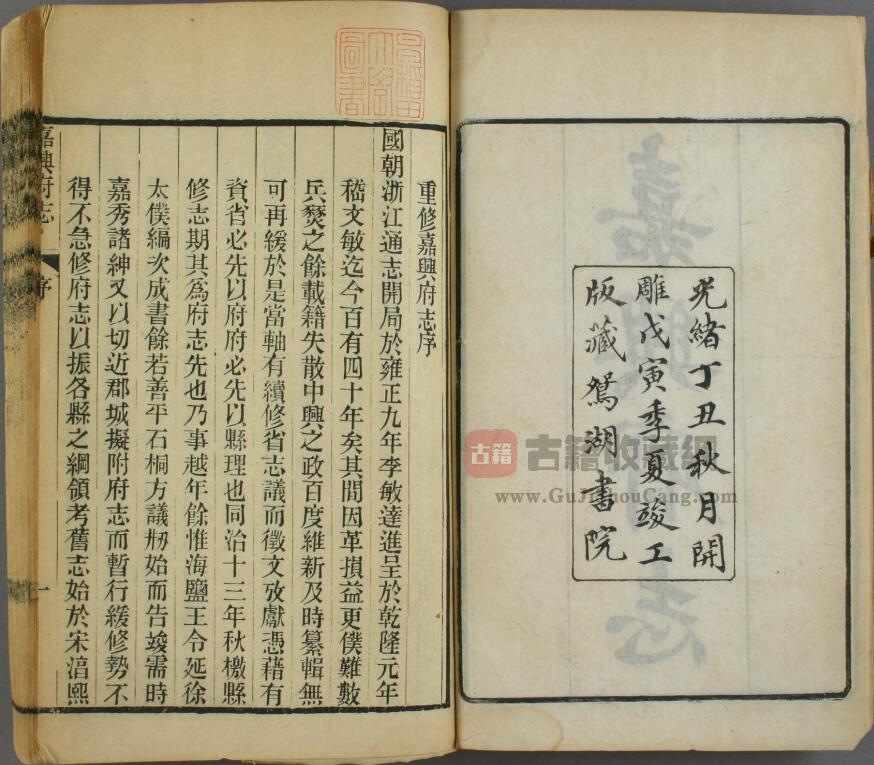 光緒丁丑秋月開
雕戊寅季夏竣工
版藏鴛湖書院
重修嘉興府志序
國朝浙江通志開局於雍正九年李敏達進呈於乾隆元年
嵇文敏迄今百有四十年矣其間因革損益更僕難數
兵燹之餘載籍失散中興之政百度維新及時纂輯無
可再緩於是當軸有續修省志議而徵文攷獻憑藉有
資省必先以府府必先以縣理也同治十三年秋檄縣
修志期其爲府志先也乃事越年餘惟海鹽王令延徐
太僕編次成書餘若善平石桐方議剏始而告竣需時
嘉秀諸紳又以切近郡城擬附府志而暫行緩修勢不
得不急修府志以振各縣之綱領考舊志始於宋淳熙
嘉興府志
序
一
古籍
古籍收藏網
www.GuJiShouCang.com